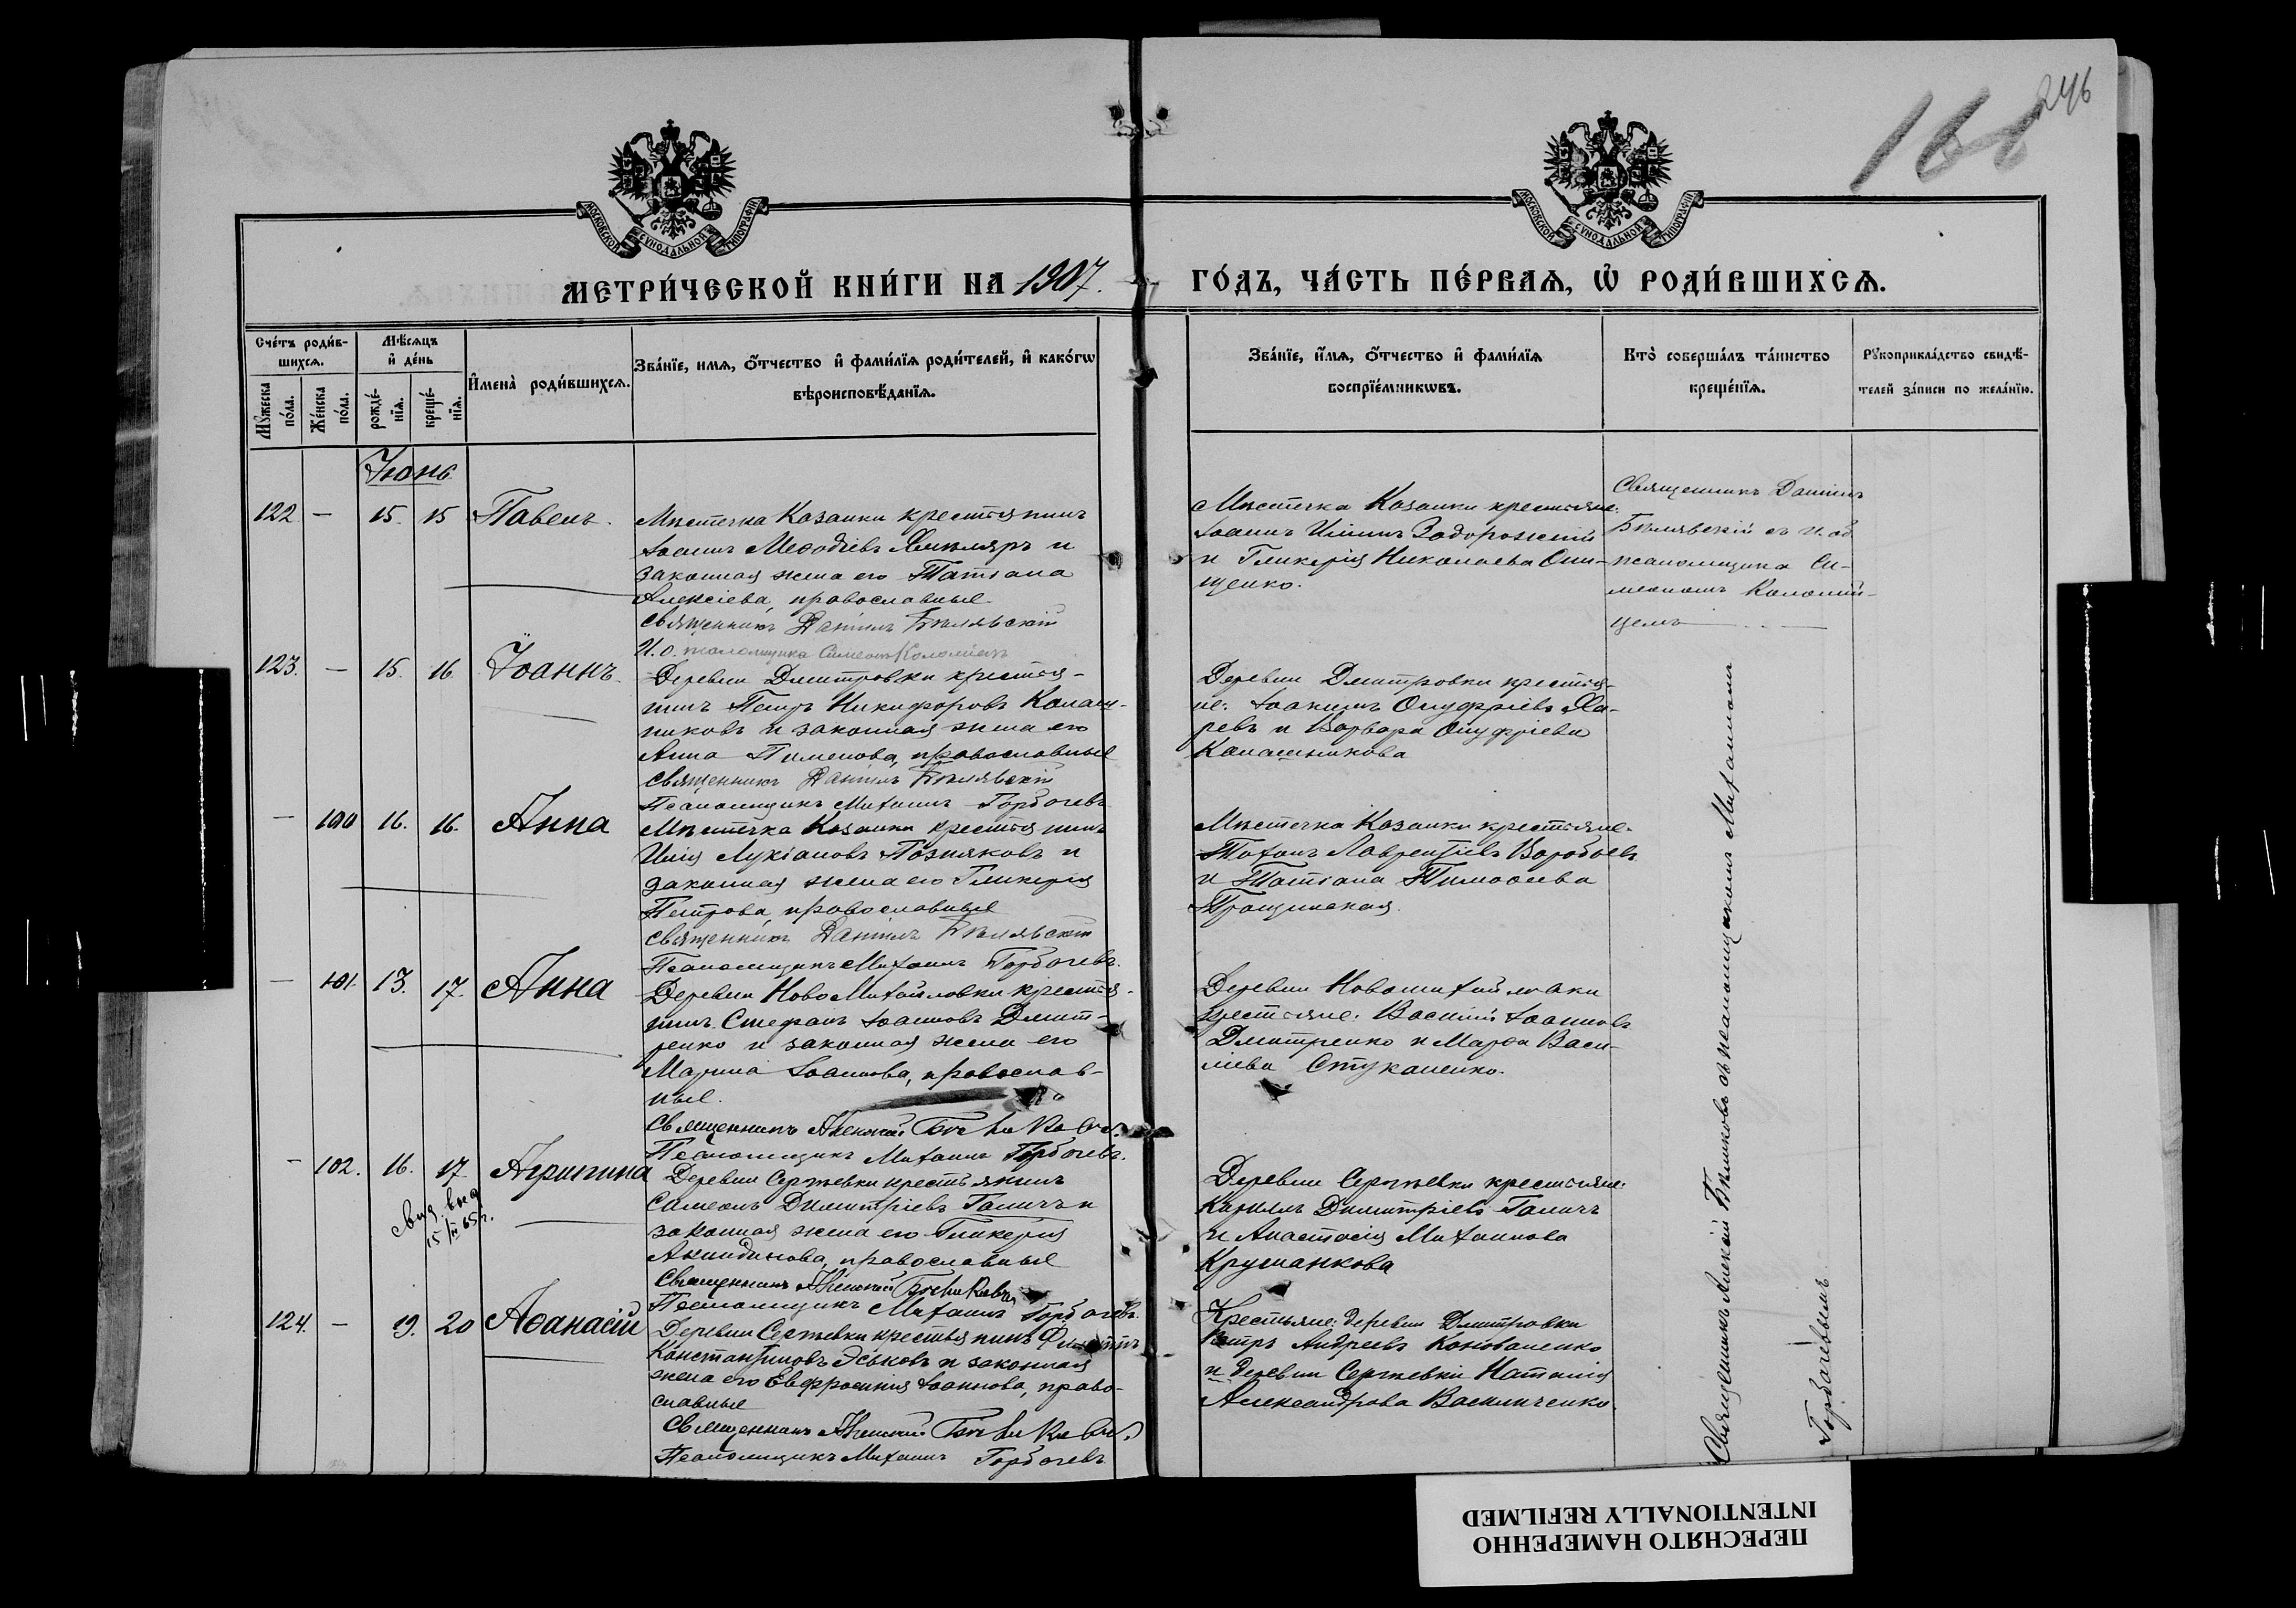 246
166
МОСКОВСКОЙ СѴНОДАЛЬНОЙ ТИПОГРАФІИ
МОСКОВСКОЙ СѴНОДАЛЬНОЙ ТИПОГРАФІИ
МЕТРИ́ЧЕСКОЙ КНИ́ГИ НА 1907.
ГО́ДЪ, ЧА́СТЬ ПЕ́РВАѦ, Ѡ҆ РОДИ́ВШИХСѦ.
Сче́тъ роди́в-
шихсѧ.
Мꙋ́жеска по́ла.
Же́нска по́ла.
Мѣ́сѧцъ
и҆ де́нь
рожде́-нїѧ.
креще́-нїѧ.
И҆мена̀ роди́вшихсѧ.
Зва́нїе, имѧ, ѻ҆́тчество и҆ фами́лїѧ роди́телей, и҆ како́гѡ
вѣроисповѣ́данїѧ.
Зва́нїе, и҆́мѧ, ѻ҆́тчество и҆ фами́лїѧ
воспрїе́мникѡвъ.
Кто̀ соверша́лъ та́инство
креще́нїѧ.
Рꙋкоприкла́дство свидѣ́-
телей за́писи по жела́нїю.
Іюнь
122 — 15. 15 Павелъ.
Мѣстечка Казанки крестьянинъ
Іоаннъ Меѳодіевъ и
законная жена его Татіана
Алексіева, православные
Священникъ Даніилъ Бѣлявскій
И. о. псаломщика Симеонъ Коломіецъ
Мѣстечка Казанки крестьяне:
Іоаннъ Иліинъ Задорожній
и Гликерія Николаева Они-
щенко.
Священникъ Даніилъ
Бѣлявскій съ и. об.
псаломщика Си-
меономъ Коломій-
цемъ
123. — 15. 16 Іоаннъ.
Деревни Дмитровки крестья-
нинъ Петръ Никифоровъ Калаш-
никовъ и законная жена его
Анна Пименова, православные
Священникъ Даніилъ Бѣлявскій
Псаломщикъ Михаилъ Горбачевъ
Деревни Дмитровки крестья-
не: Іоакимъ Онуфріевъ
и Варвара Онуфріева
Калашникова
— 100 16. 16. Анна
Мѣстечка Казанки крестьянинъ
Илія Лукіановъ Позняковъ и
законная жена его Гликерія
Петрова, православные
Священникъ Даніилъ Бѣлявскій
Псаломщикъ Михаилъ Горбачевъ.
Мѣстечка Казанки крестьяне:
Лаврентіевъ Воробьевъ
и Татіана Тимоѳеева
— 101. 13. 17. Анна
Деревни НовоМихайловки крестья-
нинъ Стефанъ Іоанновъ Дмит-
ренко и законная жена его
Марина Іоаннова, православ-
ные.
Священникъ Алексій Бѣликовъ.
Псаломщикъ Михаилъ Горбачевъ.
Деревни Новомихайловки
крестьяне: Василій Іоанновъ
Дмитренко и Марѳа Васи-
ліева Стукаленко.
— 102. 16. 17 Агрипина
Деревни Сергѣевки крестьянинъ
Симеонъ Димитріевъ Галичъ и
законная жена его Гликерія
Акиндинова, православные
Священникъ Алексій Бѣликовъ
Псаломщикъ Михаилъ Горбачевъ.
Деревни Сергѣевки крестьяне:
Кириллъ Димитріевъ Галичъ
и Анастасія Михаилова
Крушанкова
124. — 19. 20 Аѳанасій
Деревни Сергѣевки крестьянинъ
Константиновъ Эськовъ и законная
жена его Евфросинія Іоаннова, право-
славные
Священникъ Алексій Бѣликовъ.
Псаломщикъ Михаилъ Горбачевъ
Крестьяне: деревни Дмитровки
Петръ Андреевъ Коноваленко
и деревни Сергѣевки Наталія
Александрова Василиченко.
Священникъ Алексій Бѣликовъ съ псаломщикомъ Михаиломъ
Горбачевымъ
ПЕРЕСНЯТО НАМЕРЕННО
INTENTIONALLY REFILMED